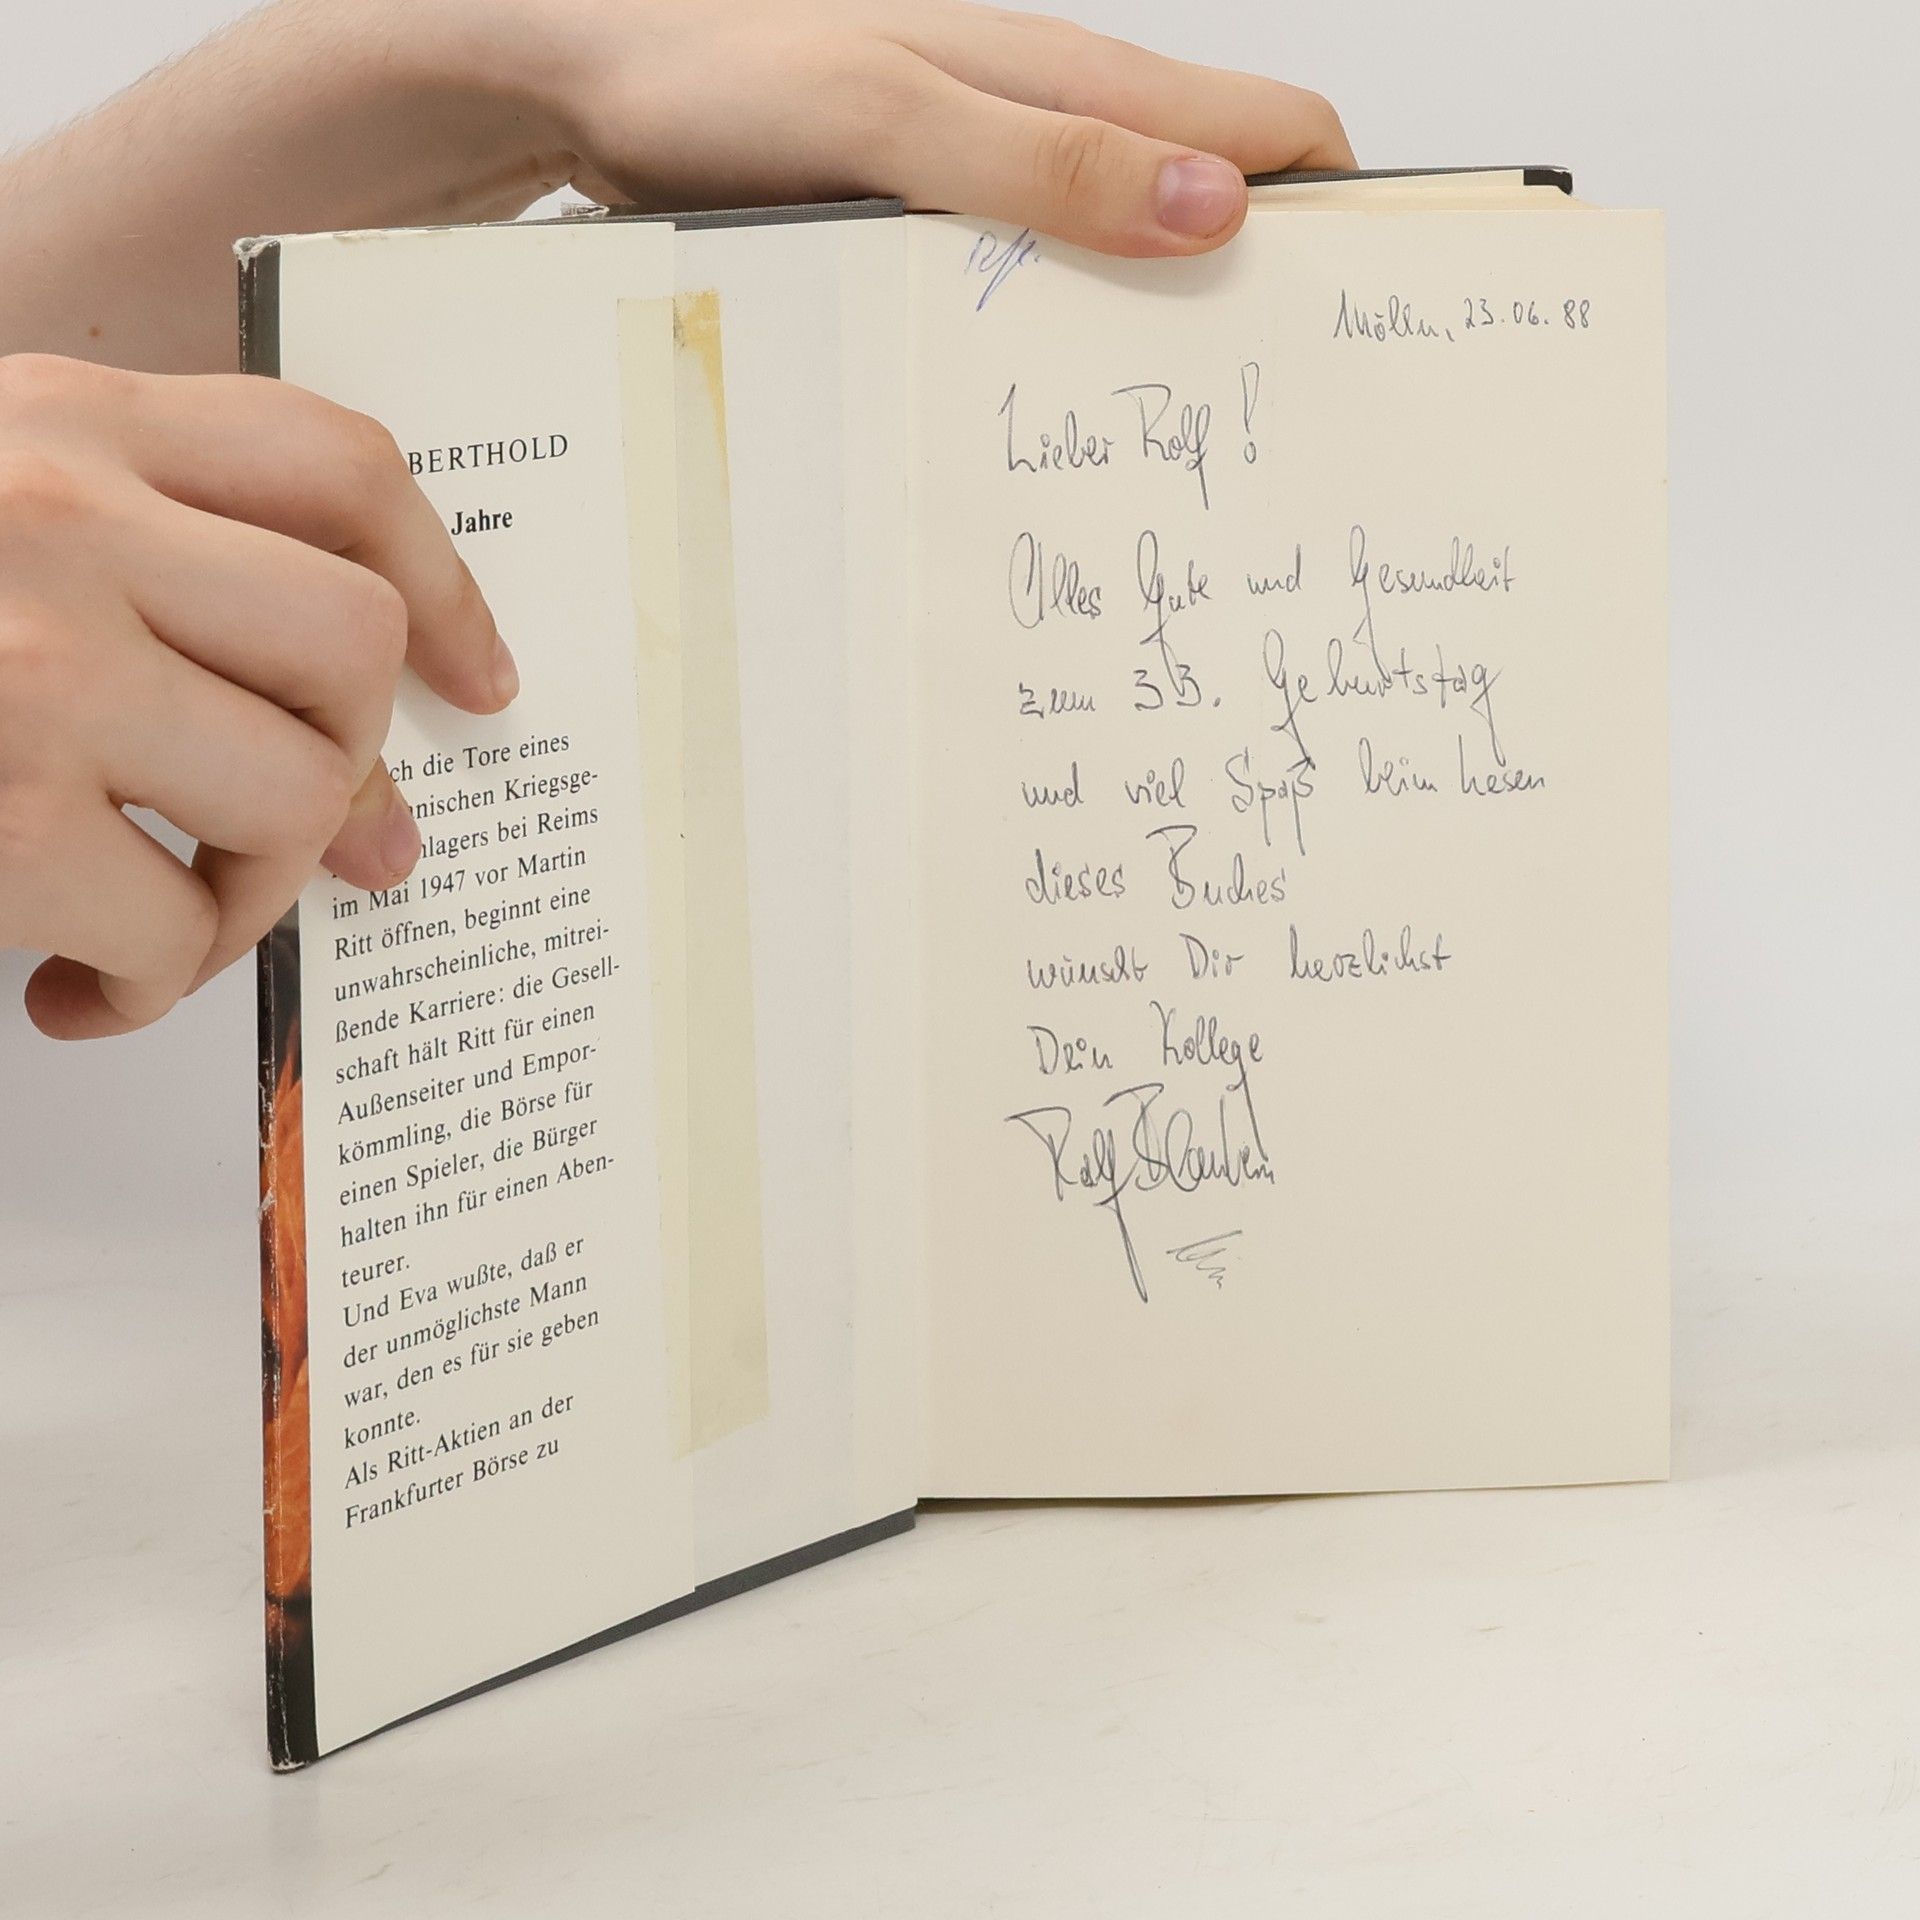 BERTHOLD
Jahre
ch die Tore eines
nischen Kriegsge-
lagers bei Reims
im Mai 1947 vor Martin
Ritt öffnen, beginnt eine
unwahrscheinliche, mitrei-
ßende Karriere: die Gesell-
schaft hält Ritt für einen
Außenseiter und Empor-
kömmling, die Börse für
einen Spieler, die Bürger
halten ihn für einen Aben-
teurer.
Und Eva wußte, daß er
der unmöglichste Mann
war, den es für sie geben
konnte.
Als Ritt-Aktien an der
Frankfurter Börse zu
Mölln, 23.06.88
Lieber Rolf!
Alles Gute und Gesundheit
zum 33. Geburtstag
und viel Spaß beim Lesen
dieses Buches
wünscht Dir herzlichst
Dein Kollege
Rolf